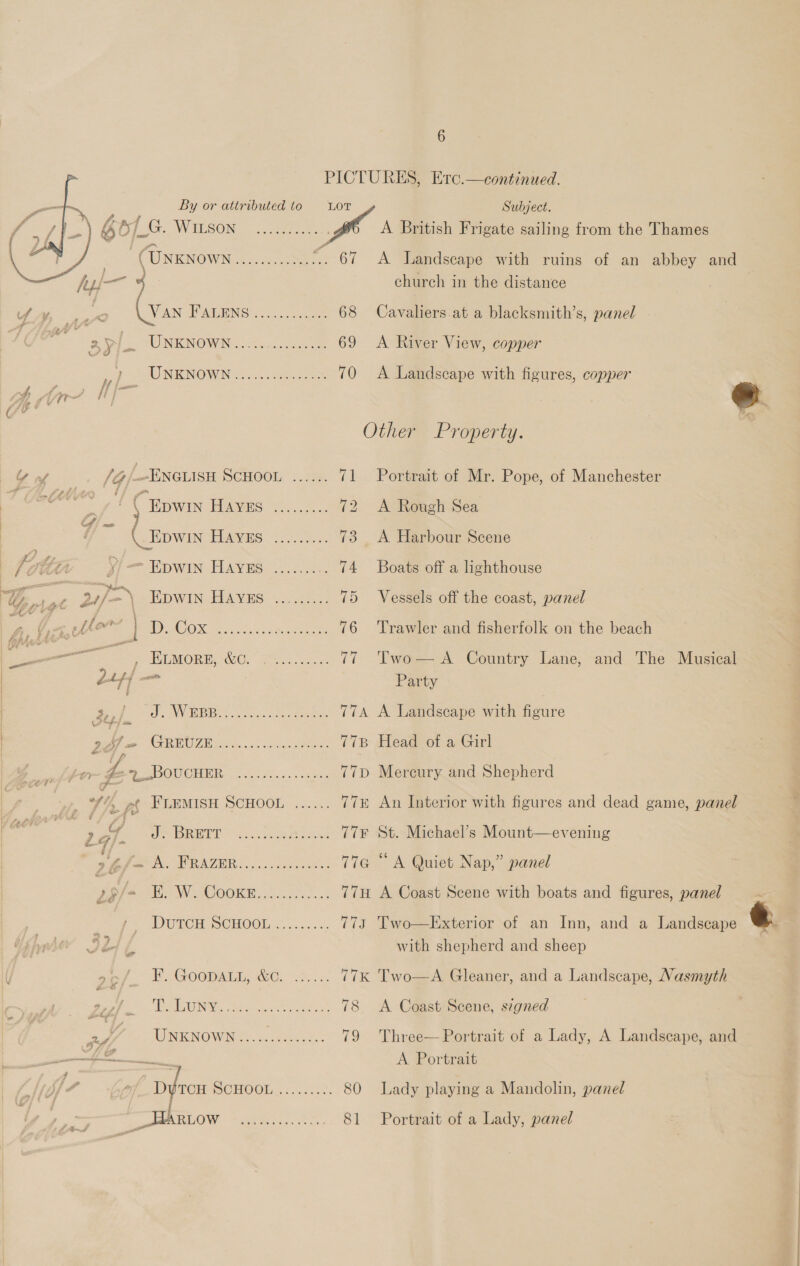 6
PICTURES, ETC.—continued.
By or attributed to LOT Subject.
60/- G. WILSON ............ 66 A British Frigate sailing from the Thames
UNKNOWN ............ 67 A Landscape with ruins of an abbey and
church in the distance
VAN FALENS ............ 68 Cavaliers at a blacksmith's, panel
UNKNOWN ............ 69 A River View, copper
UNKNOWN ............ 70 A Landscape with figures, copper
Other Property.
ENGLISH SCHOOL ...... 71 Portrait of Mr. Pope, of Manchester
EDWIN HAYES ......... 72 A Rough Sea
EDWIN HAYES ......... 73 A Harbour Scene
EDWIN HAYES ......... 74 Boats off a lighthouse
21/- EDWIN HAYES ......... 75 Vessels off the coast, panel
D. COX .................. 76 Trawler and fisherfolk on the beach
ELMORE, &C. ......... 77 Two—A Country Lane, and The Musical
Party
J. WEBB .................. 77A A Landscape with figure
GREUZE .................. 77B Head of a Girl
BOUCHER ............... 77D Mercury and Shepherd
FLEMISH SCHOOL ...... 77E An Interior with figures and dead game, panel
J. BRETT ............... 77F St. Michael's Mount—evening
A. FRAZER ............... 77G "A Quiet Nap," panel
E. W. COOKE ............ 77H A Coast Scene with boats and figures, panel
DUTCH SCHOOL ......... 77J Two—Exterior of an Inn, and a Landscape
with shepherd and sheep
F. GOODALL, &C. ...... 77K Two—A Gleaner, and a Landscape, Nasmyth
T. LUNY .................. 78 A Coast Scene, signed
UNKNOWN ............... 79 Three—Portrait of a Lady, A Landscape, and
A Portrait
DUTCH SCHOOL ......... 80 Lady playing a Mandolin, panel
HARLOW ............... 81 Portrait of a Lady, panel